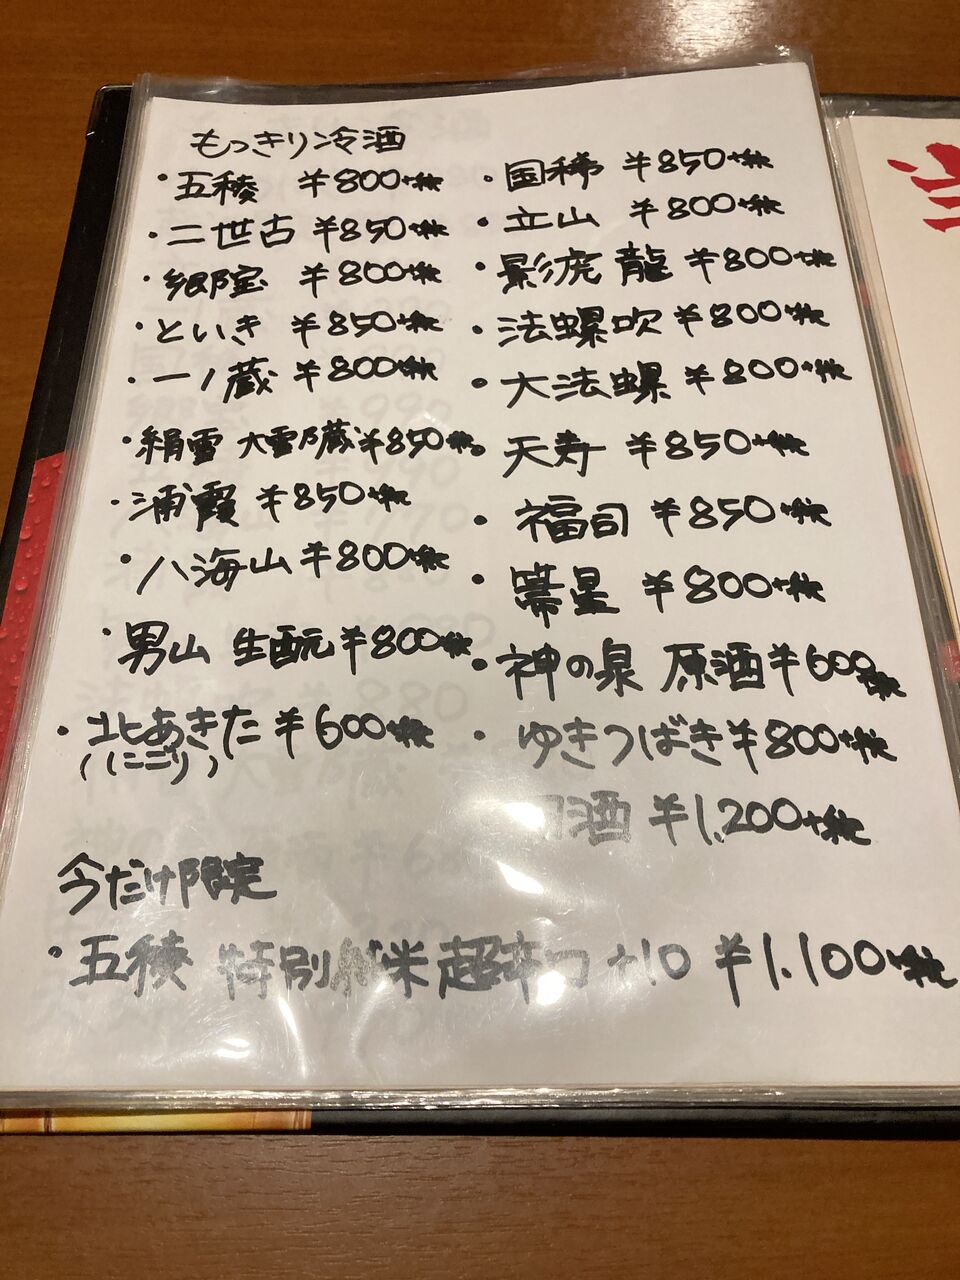 もっきり冷酒
・五稜 ¥800+税
・二世古 ¥850+税
・郷宝 ¥800+税
・といき ¥850+税
・一ノ蔵 ¥800+税
・絹雪 大雪乃蔵 ¥850+税
・浦霞 ¥850+税
・八海山 ¥800+税
・男山 生酛 ¥800+税
・北あきた ¥600+税
(にごり)
・国稀 ¥850+税
・立山 ¥800+税
・影虎 龍 ¥800+税
・法螺吹 ¥800+税
・大法螺 ¥800+税
・天寿 ¥850+税
・福司 ¥850+税
・箒星 ¥800+税
・神の泉 原酒 ¥600+税
・ゆきつばき ¥800+税
酒 ¥1,200+税
今だけ限定
・五稜 特別純米 超辛口 +10 ¥1,100+税